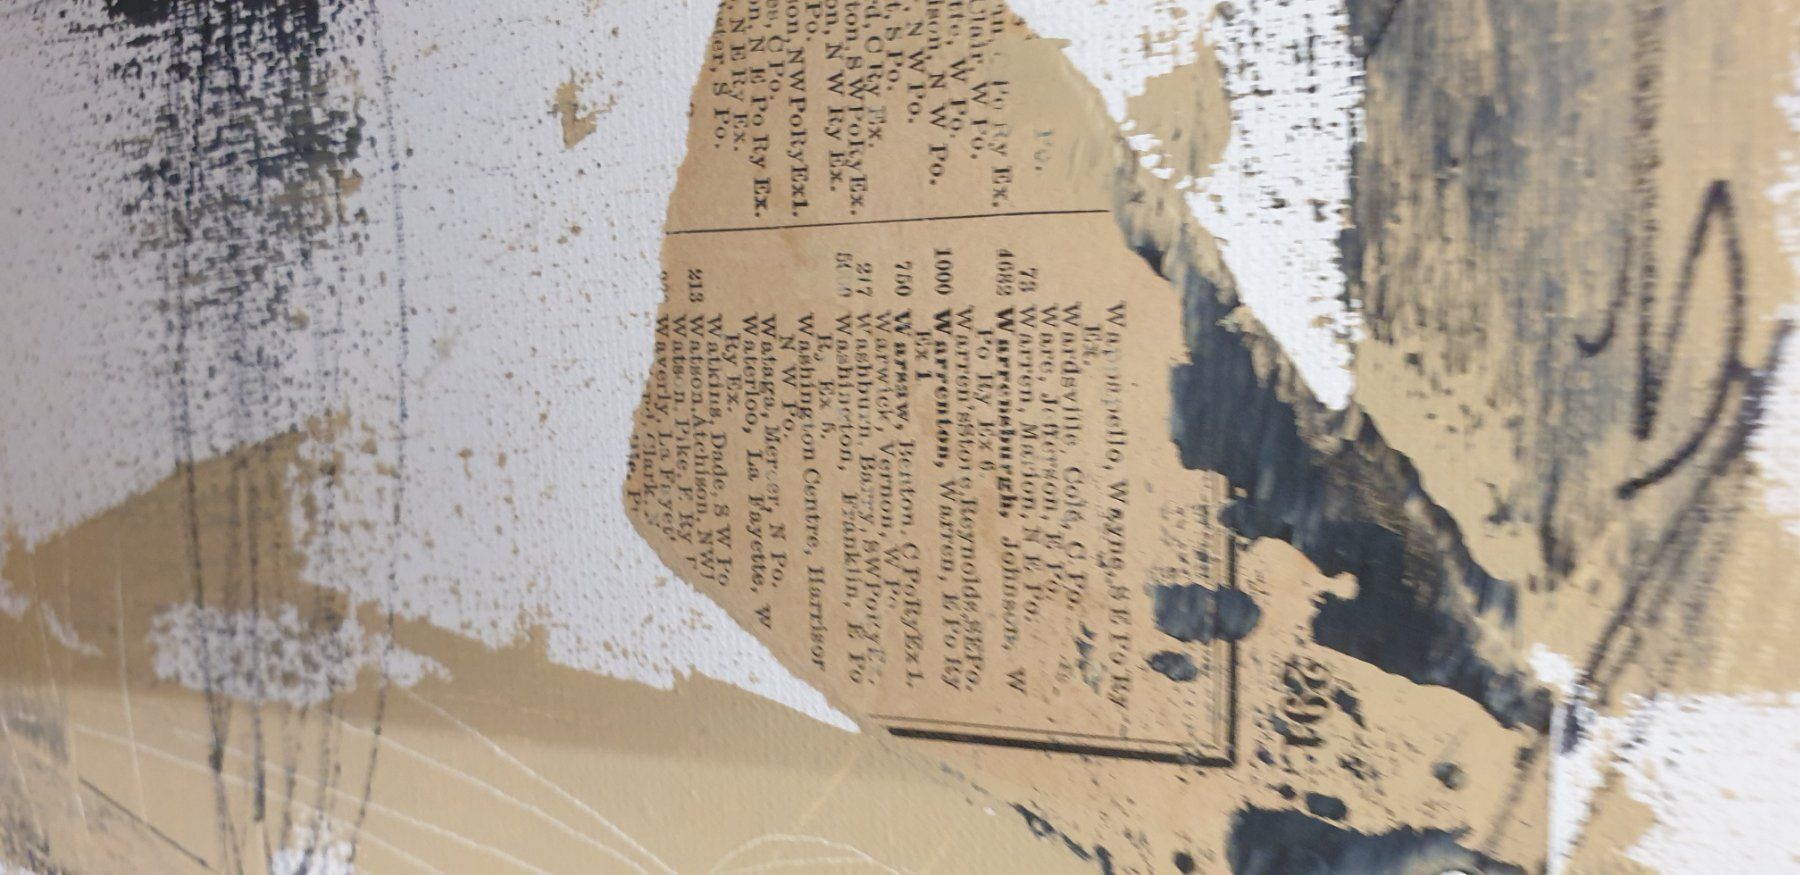 291
Po.
Po Ry Ex.
Clair, W Po.
W Po.
dson, N W Po.
N W Po.
t, S Po.
d, C Ry Ex.
ton, S W PoRyEx.
on, N W Ry Ex.
Po.
son, N W PoRyEx1.
es, C Po.
on, N E Po Ry Ex.
N E Ry Ex.
ter, S Po.
Wappapello, Wayne, S E Po Ry
Ex.
Wardsville, Cole, C Po.
Ware, Jefferson, E Po.
73 Warren, Marion, N E Po.
4682 Warrensburgh, Johnson, W
Po Ry Ex 6
Warren's Store, Reynolds, SEPo.
1000 Warrenton, Warren, E Po Ry
Ex 1
750 Warsaw, Benton, C PoRyEx1.
Warwick, Vernon, W Po.
217 Washburn, Barry, SWPoRyEx.
Washington, Franklin, E Po
R, Ex 5.
Washington Centre, Harrison
N W Po.
Watsga, Mercer, N Po.
Waterloo, La Fayette, W
Ry Ex.
Watkins, Dade, S W Po
213 Watson, Atchison, NW
Watson, Pike, E Ry
Waverly, La Fayet
Clark,